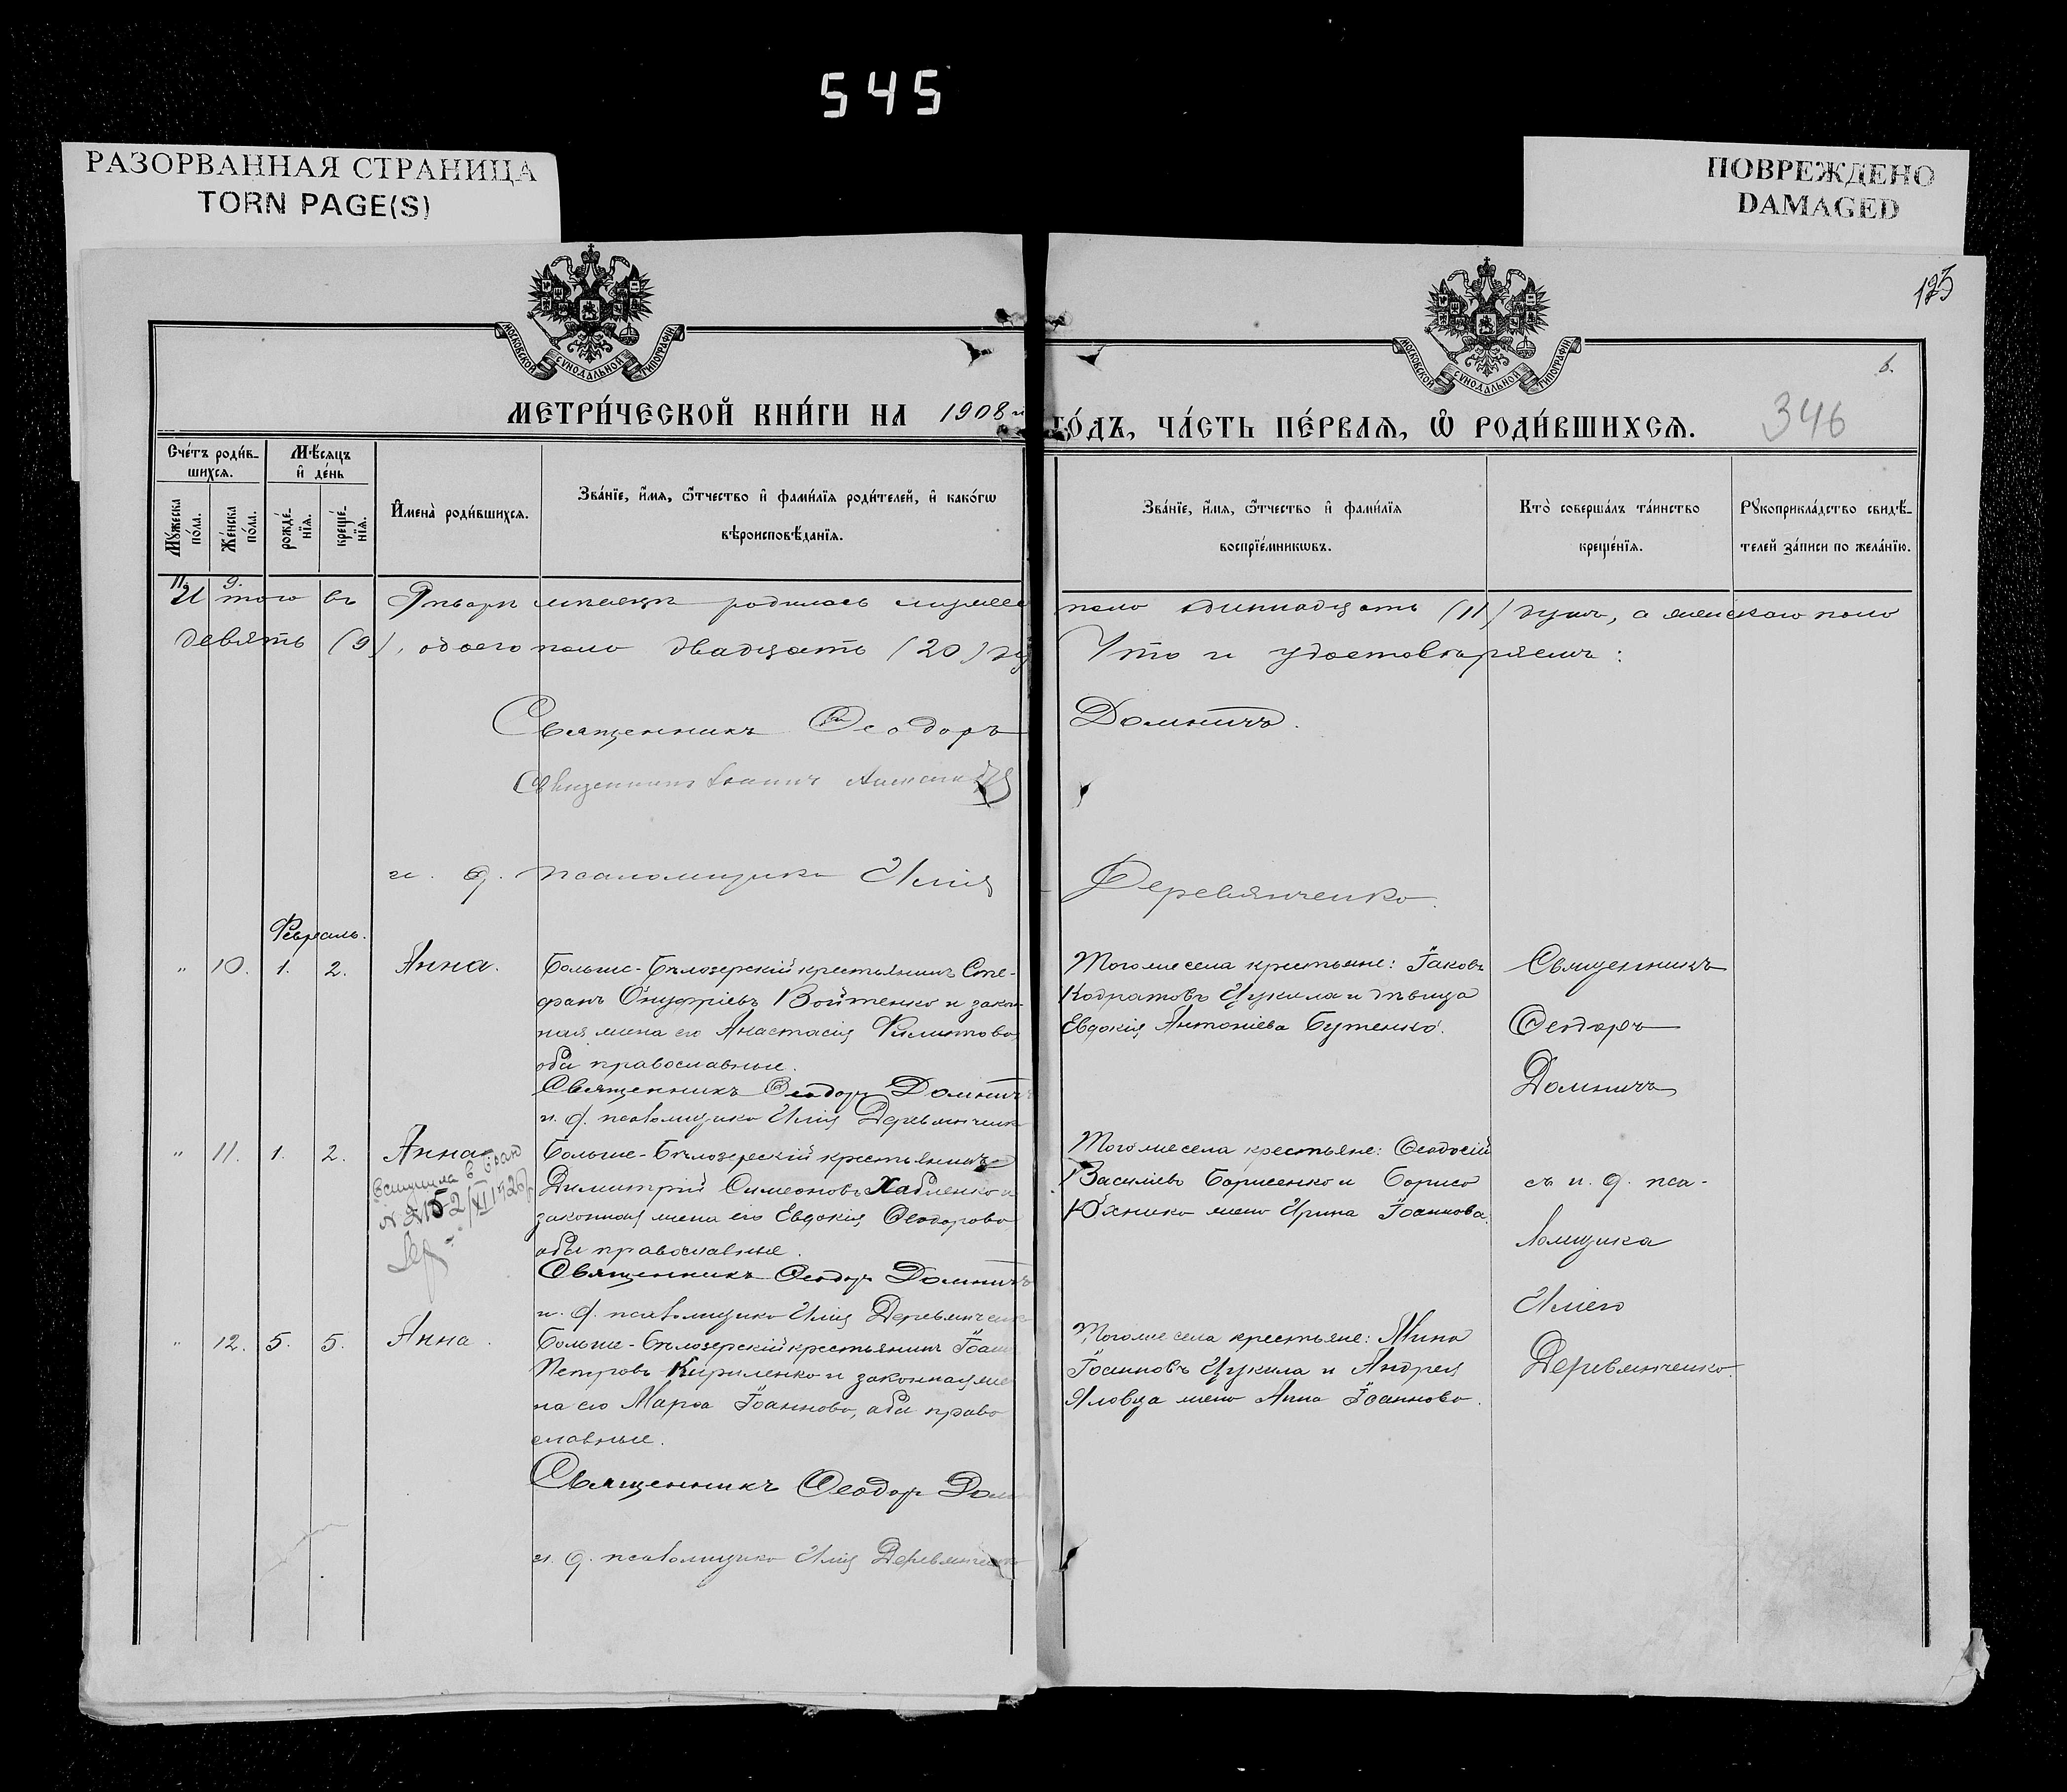 545
РАЗОРВАННАЯ СТРАНИЦА
TORN PAGE(S)
ПОВРЕЖДЕНО
DAMAGED
125
6.
346
МОСКОВСКОЙ СѴНОДАЛЬНОЙ ТИПОГРАФІИ
МОСКОВСКОЙ СѴНОДАЛЬНОЙ ТИПОГРАФІИ
МЕТРИ́ЧЕСКОЙ КНИ́ГИ НА 1908 й
ГО́ДЪ, ЧА́СТЬ ПЕ́РВАѦ, Ѽ РОДИ́ВШИХСѦ.
Сче́тъ роди́в-
шихсѧ.
Мѣ́сѧцъ
и҆ де́нь
Мꙋ́жеска по́ла.
Же́нска по́ла.
рожде́-
нїѧ.
креще́-
нїѧ.
И҆мена̀ роди́вшихсѧ.
Зва́нїе, и҆́мѧ, ѻ҆́тчество и҆ фами́лїѧ роди́телей, и҆ како́гѡ
вѣроисповѣ́данїѧ.
Зва́нїе, и҆́мѧ, ѻ҆́тчество и҆ фами́лїѧ
воспрїе́мникѡвъ.
Кто̀ соверша́лъ та́инство
креще́нїѧ.
Рꙋкоприкла́дство свидѣ́-
телей за́писи по жела́нїю.
11. 9.
Итого въ Январѣ мѣсяцѣ родилось мужеск пола одиннадцать (11) душъ, а женскаго пола
девять (9), обоего пола двадцать (20) ду Что и удостовѣряемъ:
Священникъ Ѳеодоръ Домничъ.
Священникъ Іоаннъ
и. д. псаломщика Илія Деревянченко.
Февраль.
" 10. 1. 2. Анна.
Больше-Бѣлозерскій крестьянинъ Сте-
фанъ Онуфріевъ Войтенко и закон-
ная жена его Анастасія Филиппова
оба православные.
Священникъ Ѳеодоръ Домничъ
и. д. псаломщика Илія Деревянченко
Того же села крестьяне: Іаковъ
Кодратовъ Цукила и дѣвица
Евдокія Антоніева Бутенко.
Священникъ
Ѳеодоръ
Домничъ
" 11. 1. 2. Анна
Больше-Бѣлозерскій крестьянинъ
Димитрій Симеоновъ Хабленко и
законная жена его Евдокія Ѳеодорова
оба православные.
Священникъ Ѳеодоръ Домничъ
и. д. псаломщика Илія Деревянченко
Того же села крестьяне: Ѳеодосій
Васильевъ Борисенко и Бориса
Юхника жена Ирина Іоаннова.
съ и. д. пса-
ломщика
Иліею
Деревянченко.
" 12. 5. 5. Анна.
Больше-Бѣлозерскій крестьянинъ Іоан
Петровъ Кириленко и законная же
на его Марѳа Іоаннова, оба право
славные.
Священникъ Ѳеодоръ Дом
и. д. псаломщика Илія Деревянченко
Того же села крестьяне: Мина
Іоанновъ Цукила и Андрея
Яловца жена Анна Іоаннова.